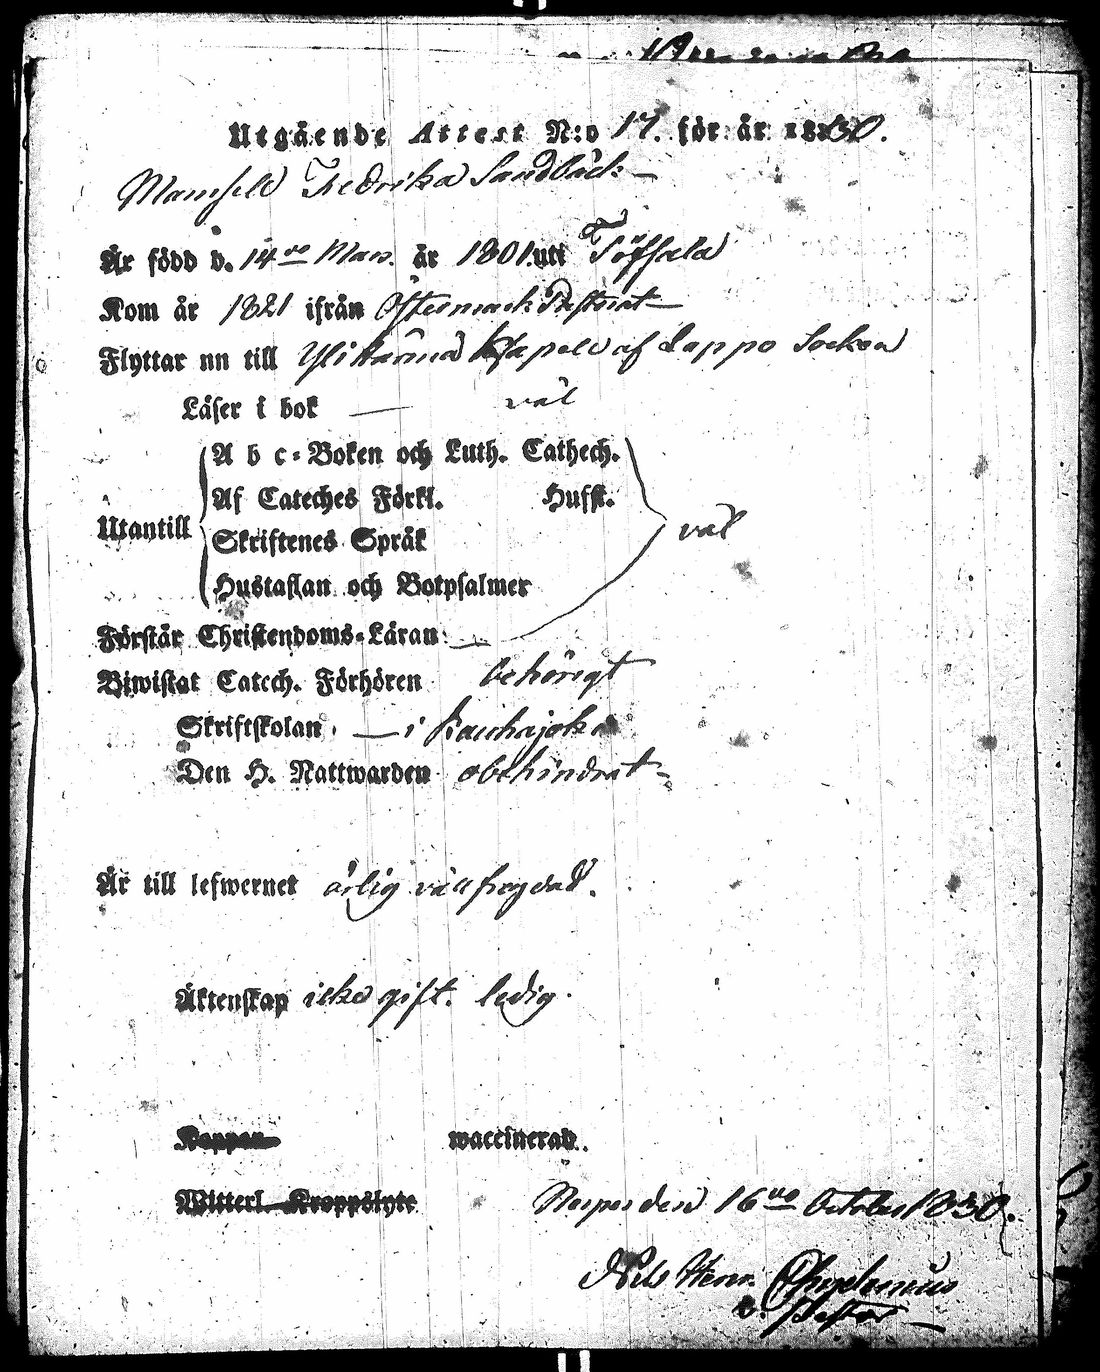 Utgående Attest N:o 17. för år 1830.
Mamsell Fredrika Sandbäck
Är född d. 14de Mars. år 1801. uti Töfsala
Kom år 1821 ifrån Östermark Pastorat
Flyttar nu till Ylistaro Kapell af Lappo Socken
Läser i bok — väl
Utantill
A b c-Boken och Luth. Cathech.
Af Cateches Förkl. Hufst.
Skriftenes Språk
väl
Hustaflan och Botpsalmer
Förstår Christendoms-Läran
Biwistat Catech. Förhören behörigt
Skriftskolan. — i Kauhajoki
Den H. Nattwarden obehindrat
Är till lefwernet ärlig väll frejdad.
Äktenskap icke gift. ledig.
Koppor waccinerad.
Witterl. Kroppslyte
den 16de October 1830.
Nils Henr.
v. Pastor